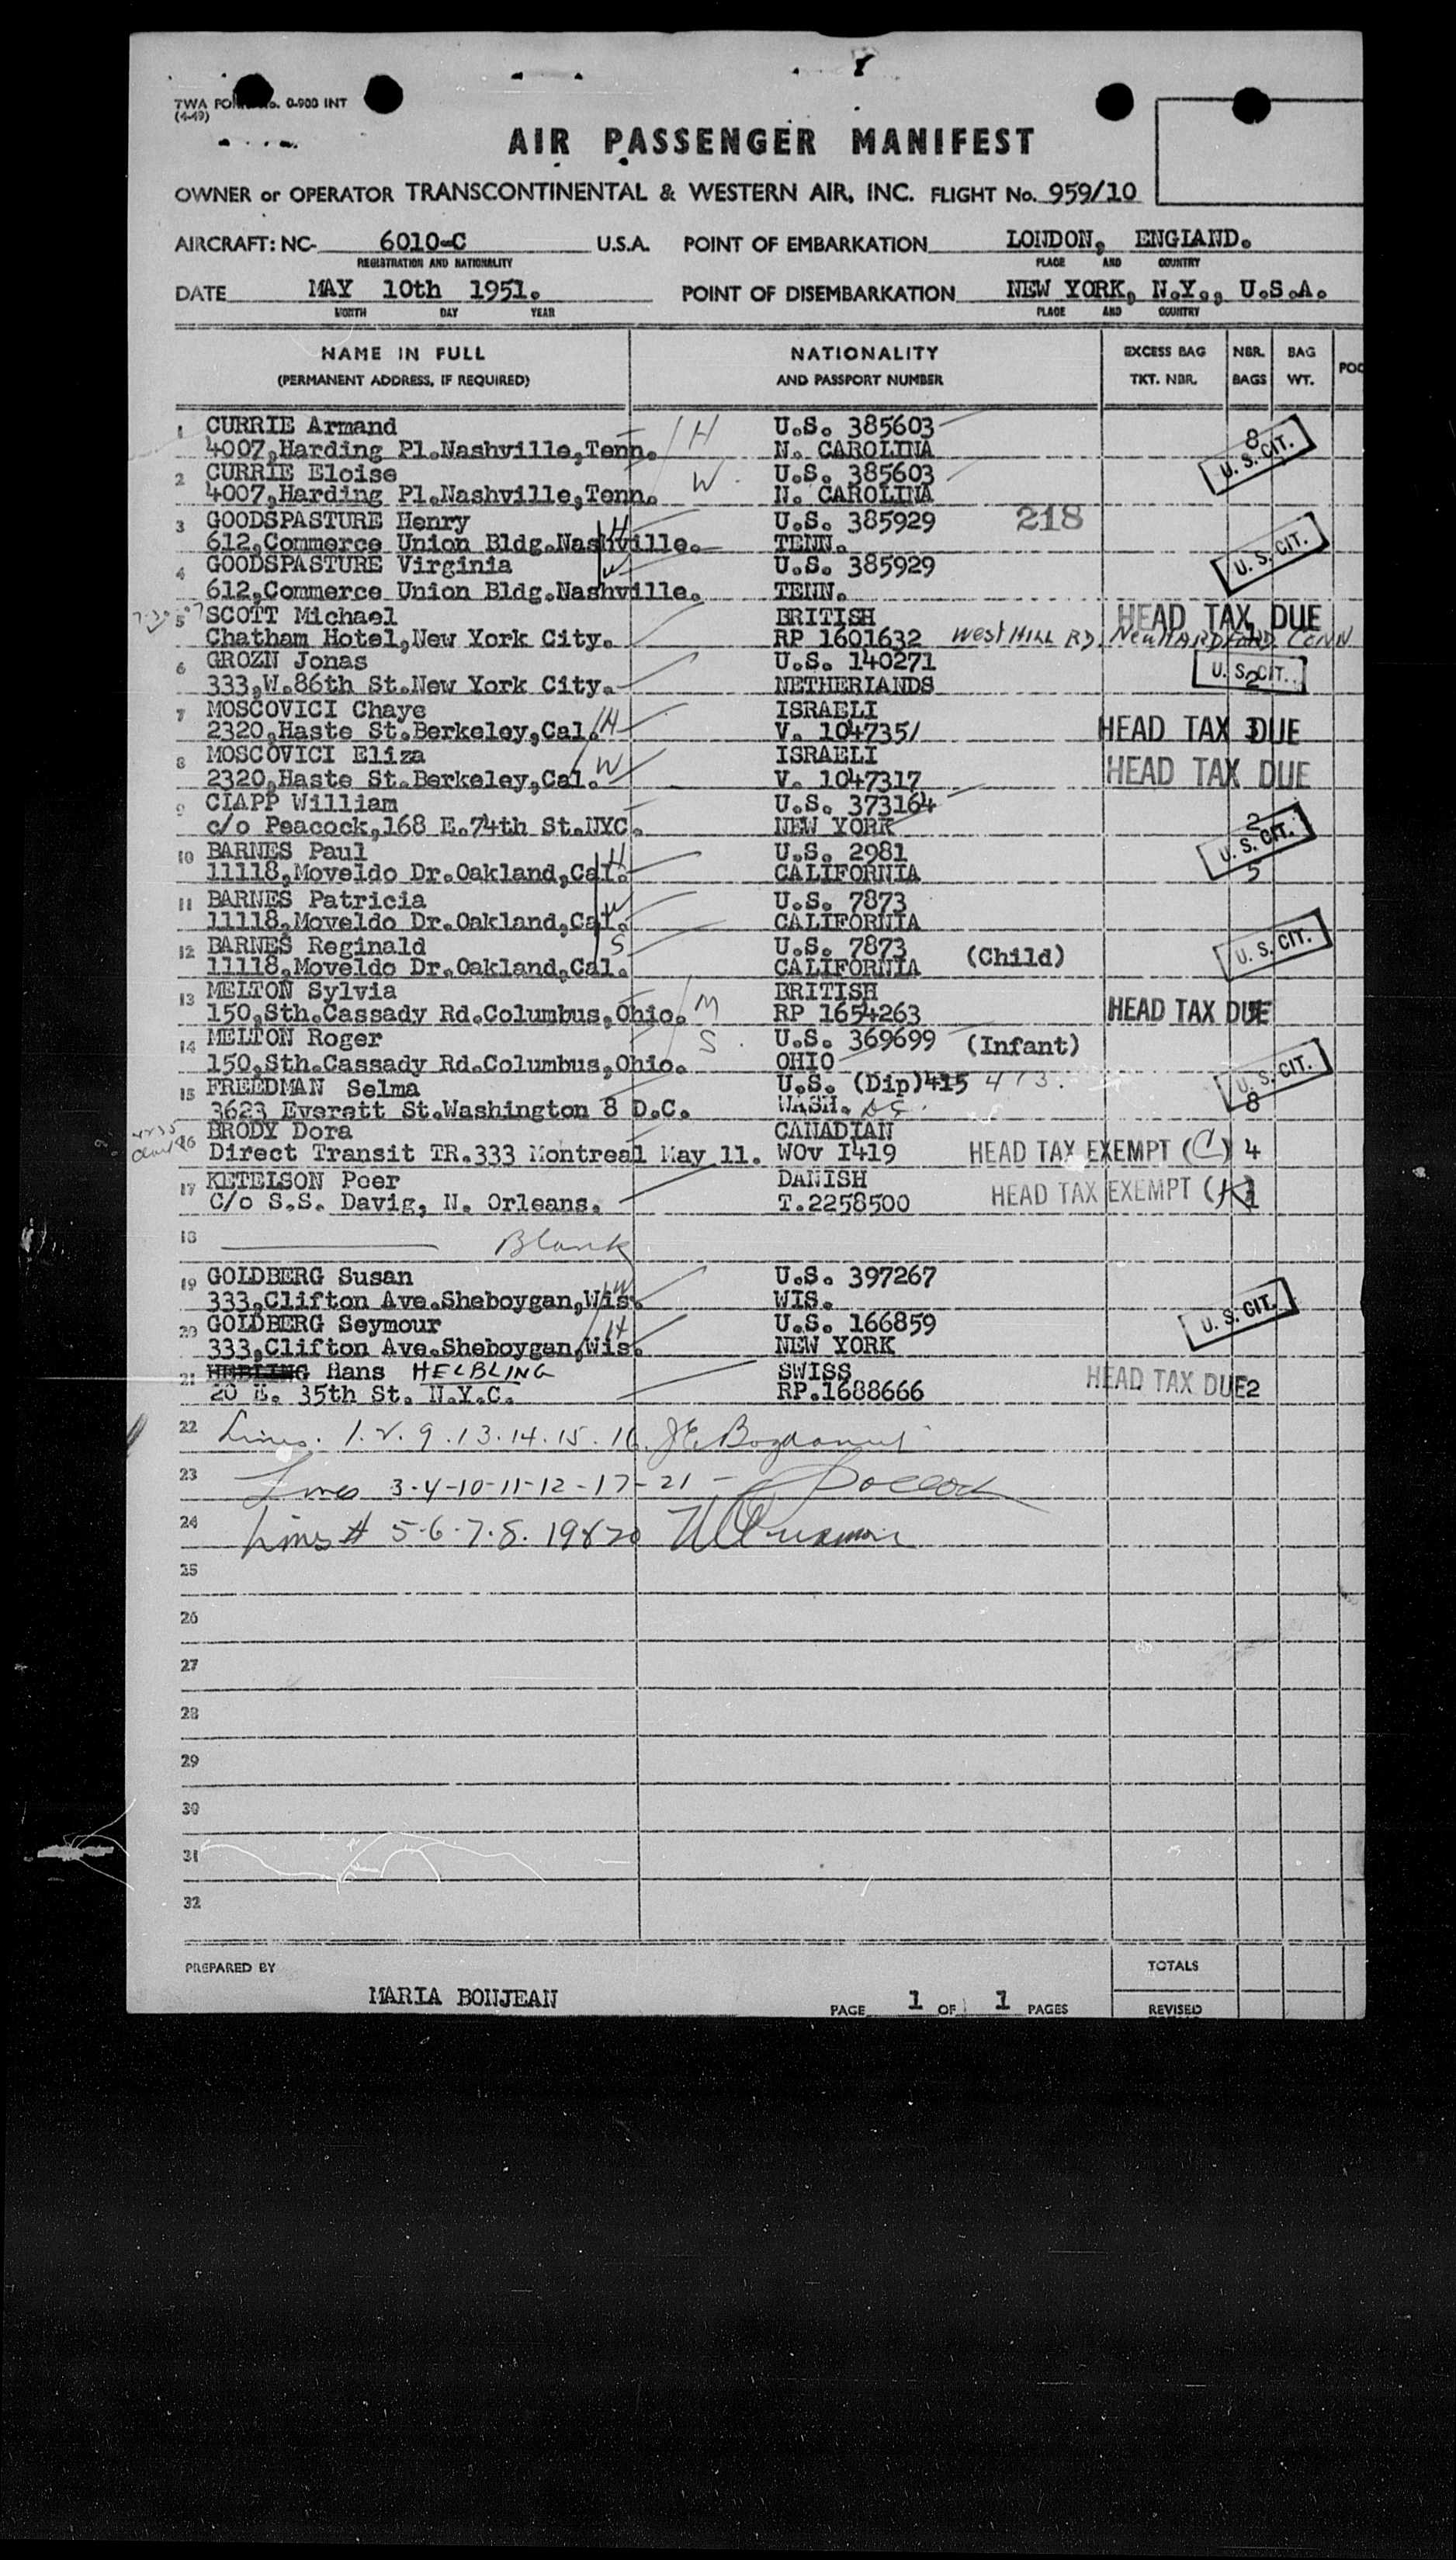 TWA FORM No. 0-900 INT
(4-49)
AIR PASSENGER MANIFEST
OWNER or OPERATOR TRANSCONTINENTAL & WESTERN AIR, INC. FLIGHT No. 959/10
AIRCRAFT: NC- 6010-C U.S.A. POINT OF EMBARKATION LONDON, ENGLAND.
REGISTRATION AND NATIONALITY PLACE AND COUNTRY
DATE MAY 10th 1951. POINT OF DISEMBARKATION NEW YORK, N.Y., U.S.A.
MONTH DAY YEAR PLACE AND COUNTRY
NAME IN FULL NATIONALITY EXCESS BAG NBR. BAG
(PERMANENT ADDRESS, IF REQUIRED) AND PASSPORT NUMBER TKT. NBR. BAGS WT.
1 CURRIE Armand U.S. 385603 8
4007,Harding Pl.Nashville,Tenn. H N. CAROLINA U. S. CIT.
2 CURRIE Eloise U.S. 385603
4007,Harding Pl.Nashville,Tenn. W. N. CAROLINA
3 GOODSPASTURE Henry U.S. 385929 218
612,Commerce Union Bldg.Nashville. H TENN.
4 GOODSPASTURE Virginia U.S. 385929 U. S. CIT.
612,Commerce Union Bldg.Nashville. W TENN.
5 SCOTT Michael BRITISH HEAD TAX DUE
Chatham Hotel,New York City. RP 1601632 West HILL RD. New HARDFORD CONN
6 GROZN Jonas U.S. 140271 U. S. CIT.
333,W.86th St.New York City. NETHERLANDS 2
7 MOSCOVICI Chaye ISRAELI
2320,Haste St.Berkeley,Cal. H V. 104735/ HEAD TAX DUE 3
8 MOSCOVICI Eliza ISRAELI
2320,Haste St.Berkeley,Cal. W V. 1047317 HEAD TAX DUE
9 CLAPP William U.S. 373164
c/o Peacock,168 E.74th St.NYC. NEW YORK 2 U. S. CIT.
10 BARNES Paul U.S. 2981
11118,Moveldo Dr.Oakland,Cal. H CALIFORNIA 5
11 BARNES Patricia U.S. 7873
11118,Moveldo Dr.Oakland,Cal. W CALIFORNIA
12 BARNES Reginald S U.S. 7873 (Child) U. S. CIT.
11118,Moveldo Dr.Oakland,Cal. CALIFORNIA
13 MELTON Sylvia BRITISH
150,Sth.Cassady Rd.Columbus,Ohio. M RP 1654263 HEAD TAX DUE
14 MELTON Roger S. U.S. 369699 (Infant)
150,Sth.Cassady Rd.Columbus,Ohio. OHIO
15 FREEDMAN Selma U.S. (Dip)415 413. U. S. CIT.
3623 Everett St.Washington 8 D.C. WASH. DC. 8
16 BRODY Dora CANADIAN
Direct Transit TR.333 Montreal May 11. WOV I419 HEAD TAX EXEMPT (C) 4
17 KETELSON Peer DANISH
C/o S.S. Davig, N. Orleans. T.2258500 HEAD TAX EXEMPT
18 Blank
19 GOLDBERG Susan U.S. 397267
333,Clifton Ave.Sheboygan,Wis. W WIS.
20 GOLDBERG Seymour U.S. 166859 U. S. CIT.
333,Clifton Ave.Sheboygan,Wis. H NEW YORK
21 HEBLING Hans HELBLING SWISS
20 E. 35th St. N.Y.C. RP.1688666 HEAD TAX DUE 2
22 Lines. 1. 2. 9. 13. 14. 15. 16
23 Lines 3-4-10-11-12-17-21-
24 Lines # 5-6-7-8. 19&20
25
26
27
28
29
30
31
32
PREPARED BY TOTALS
MARIA BONJEAN PAGE 1 OF 1 PAGES REVISED